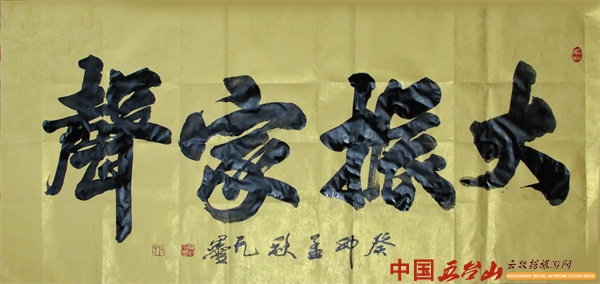 大振家聲
癸卯孟秋
中国五台山 云数据旅游网
WUTAISHAN TRAVEL NETWORK CLOUD DATA